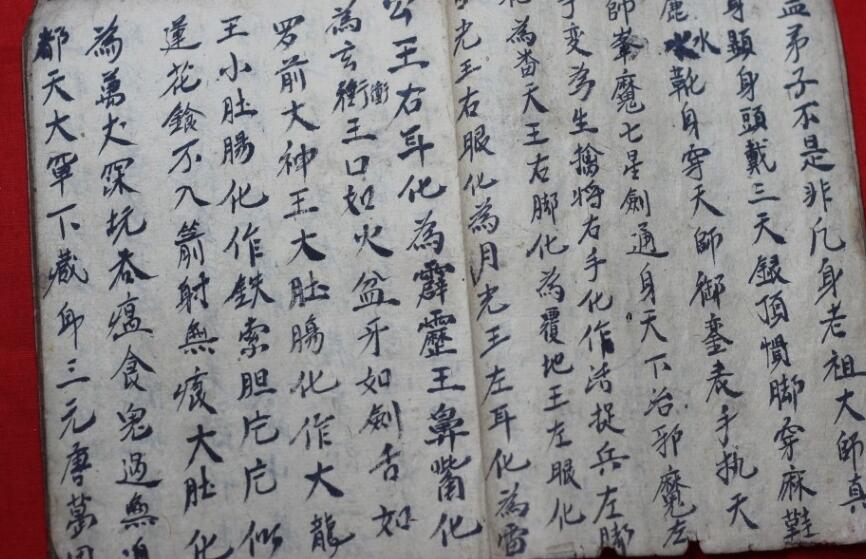 盖弟子不是非凡身老祖大師真
身顕身頭戴三天録頂慣脚穿麻鞋
鹿水靴身穿天師御鑾衣手执天
師𨦟魔七星劍通身天下治邪魔左
手变為生擒将右手化作活捉兵左脚
化為畨天王右脚化為覆地王左眼化
日光王右眼化為月光王左耳化為雷
公王右耳化為霹靂王鼻嘴化
為玄衝王口如火盆牙如劍舌如
罗前大神王大肚腸化作大龍
王小肚腸化作鉄索胆疕疕似
蓮花鎗不入箭射無痕大肚化
為萬丈深坑吞瘟食鬼過無
都天大𡩋下藏身三元唐葛